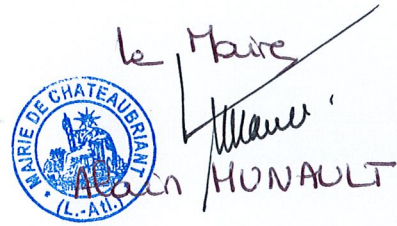 le Maire
MAIRIE DE CHATEAUBRIANT
(L.-Atl.)
Alain HUNAULT